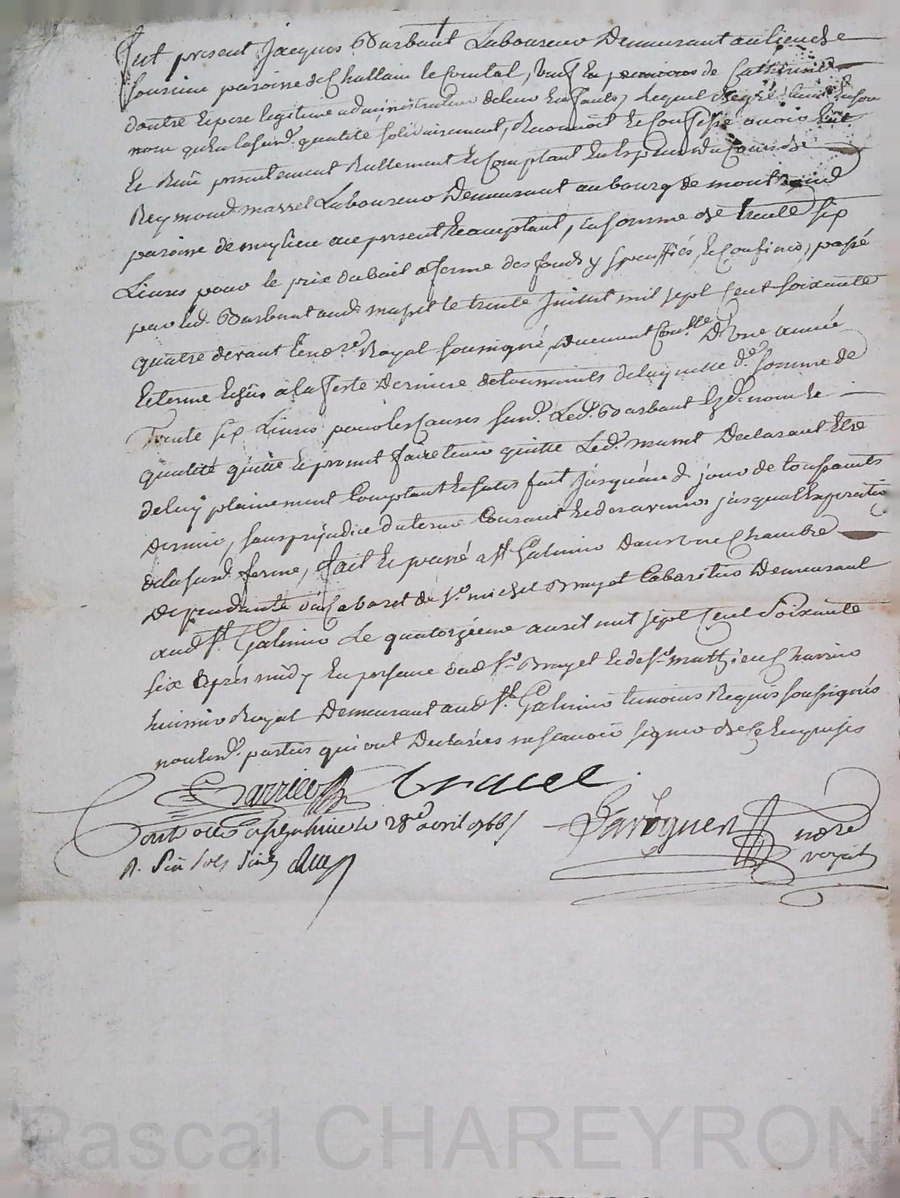 fut present Jacques Barbant Laboureur Demeurant au lieu de
paroisse de Challain le Comtal, veuf En de Catherine
d'autre Et pere legitime administrateur de leur Enfants, lequel de gré tant En son
nom qu'En lasusd. qualité solidairement, Reconnoit Et Confesse avoir Eue
Et Receu presentement Reellement Et Comptant En Especes du Cours de
Reymond massel Laboureur Demeurant au bourg de montrond
paroisse de meylieu ace present Et acceptant, la somme de trente six
Livres pour le prix du bail a ferme des fonds y speciffiés, Et Confinés, passé
par led. Barbant aud. massel le trente Juillet mil sept Cent soixante
quatre devant le no.re Royal soussigné, Duement Contrôllé D'une année
Et terme Echeu a la feste Derniere de toussaints de laquelle d.e somme de
Trente six Livres pour les Causes susd. Led. Barbant Esd. nom Et
qualité quitte Et promet faire tenir quitte Led. massel Declarant Etre
de luy plainement Comptant Et satisfait Jusques aud. jour de toussaints
Dernier, sans prejudice du terme Courant Et de ceux avenir jusqual'Expiration
de la susd. ferme, fait Et passé a St. Galmier Dans une Chambre
Dependante du Cabaret de Sr. michel Brayet Cabaretier Demeurant
aud. St. Galmier Le quatorzieme avril mil sept Cent Soixante
six aprés midy En presence dud. Sr. Brayet Et de Sr. mathieu Charrin
huissier Royal Demeurant aud. St. Galmier temoins Requis soussignés
non lesd. parties qui ont Declarées ne scavoir signer de ce Enquises
Brayet
Contrôllé a St galmier le 28e avril 1766
R. Six sols Six d.
no.re
royal
Pascal CHAREYRON